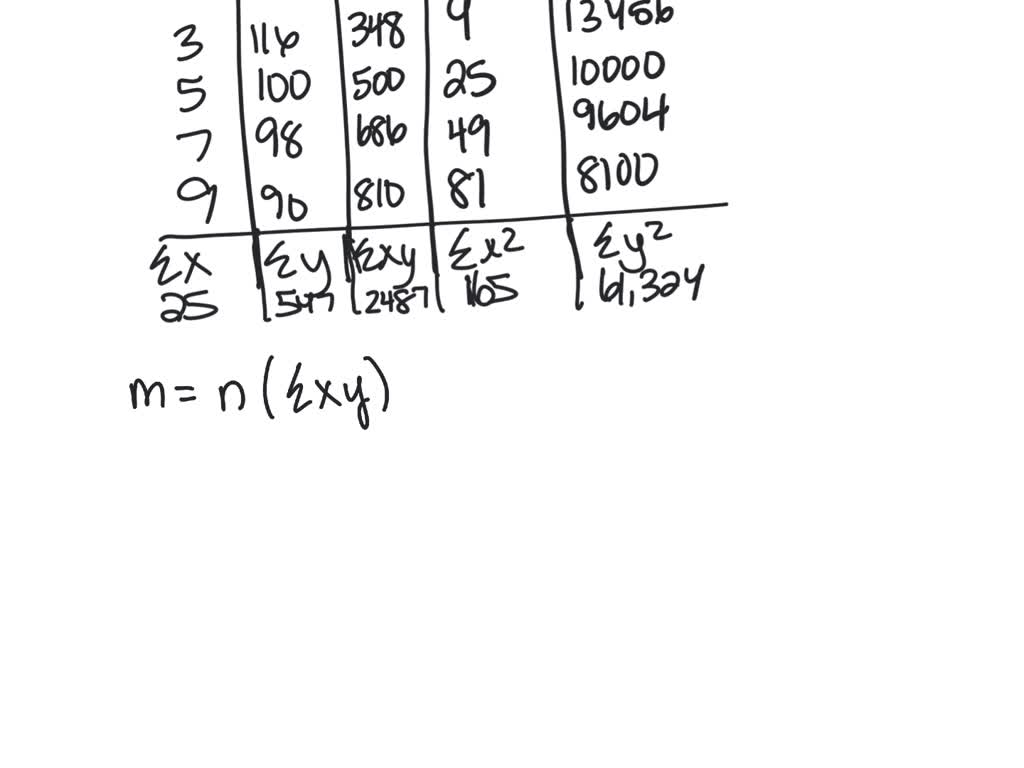 3 116 348 9 13456
5 100 500 25 10000
7 98 686 49 9604
9 90 810 81 8100
Σx Σy Σxy Σx² Σy²
25 547 2487 165 61,324
m = n (Σxy)